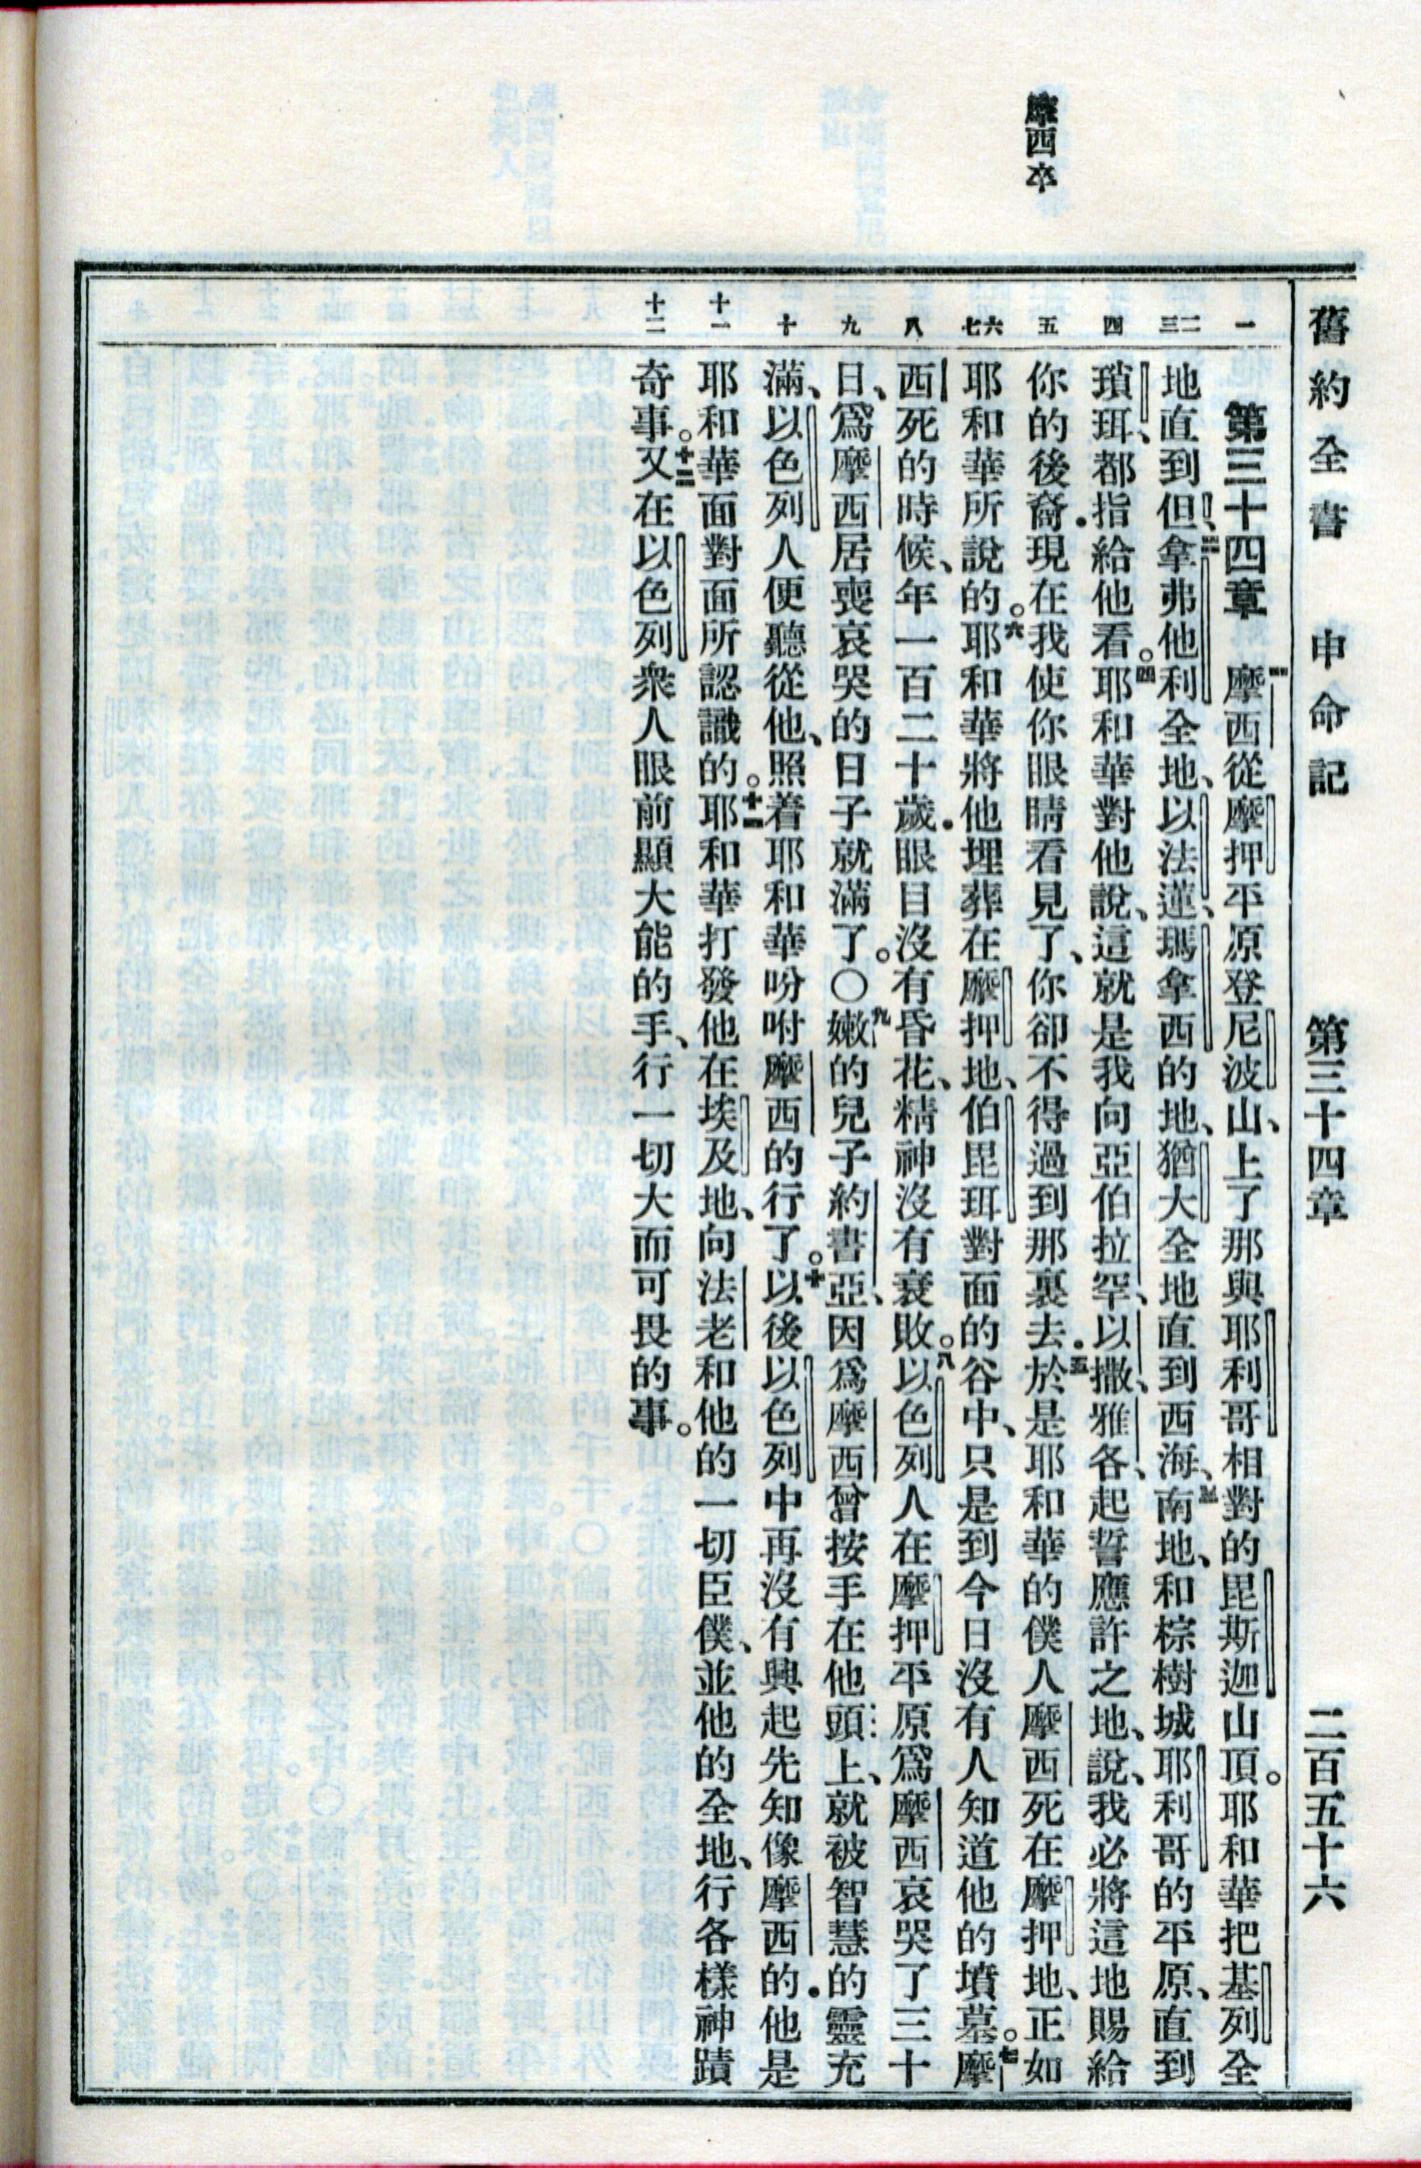 舊約全書　申命記　第三十四章　二百五十六
摩西卒
一
二三
四
五
六七
八
九
十
十一
十二
第三十四章　一摩西從摩押平原登尼波山、上了那與耶利哥相對的毘斯迦山頂。耶和華把基列全
地直到但、二拿弗他利全地、以法蓮、瑪拿西的地、猶大全地直到西海、三南地、和棕樹城耶利哥的平原、直到
瑣珥、都指給他看。四耶和華對他說、這就是我向亞伯拉罕、以撒、雅各、起誓應許之地、說、我必將這地賜給
你的後裔．現在我使你眼睛看見了、你卻不得過到那裏去．五於是耶和華的僕人摩西死在摩押地、正如
耶和華所說的。六耶和華將他埋葬在摩押地、伯毘珥對面的谷中、只是到今日沒有人知道他的墳墓。七摩
西死的時候、年一百二十歲．眼目沒有昏花、精神沒有衰敗。八以色列人在摩押平原爲摩西哀哭了三十
日、爲摩西居喪哀哭的日子就滿了。〇九嫩的兒子約書亞、因爲摩西曾按手在他頭上、就被智慧的靈充
滿、以色列人便聽從他、照着耶和華吩咐摩西的行了。十以後以色列中再沒有興起先知像摩西的．他是
耶和華面對面所認識的。十一耶和華打發他在埃及地、向法老和他的一切臣僕、並他的全地、行各樣神蹟
奇事。十二又在以色列衆人眼前顯大能的手、行一切大而可畏的事。